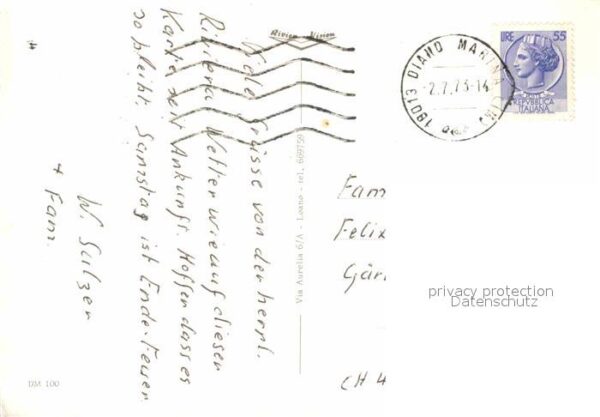 Viele Grüsse von der herrl.
Riviera. Wetter wie auf dieser
Karte seit Ankunft. Hoffen dass es
so bleibt. Samstag ist Ende-Feuer
W. Sulzer
+ Fam.
Rivier Vision
Via Aurelia 6/A - Loano - tel. 669750
DM 100
18013 DIANO MARINA (IM)
-2.7.73-14
LIRE 55
REPVBBLICA
ITALIANA
Fam
Felix
Gär
CH 4
privacy protection
Datenschutz